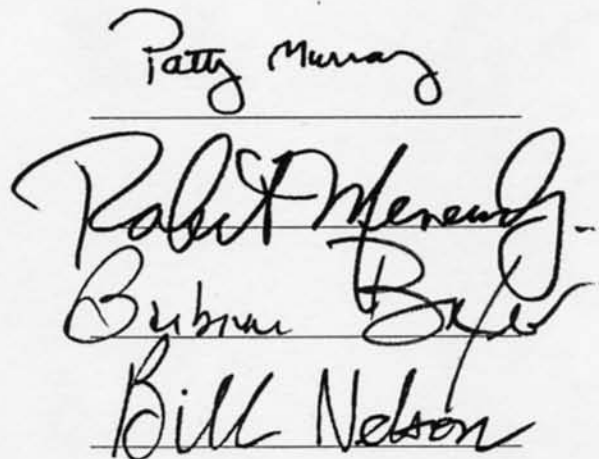 Patty Murray
Robert Menendez
Barbara Boxer
Bill Nelson